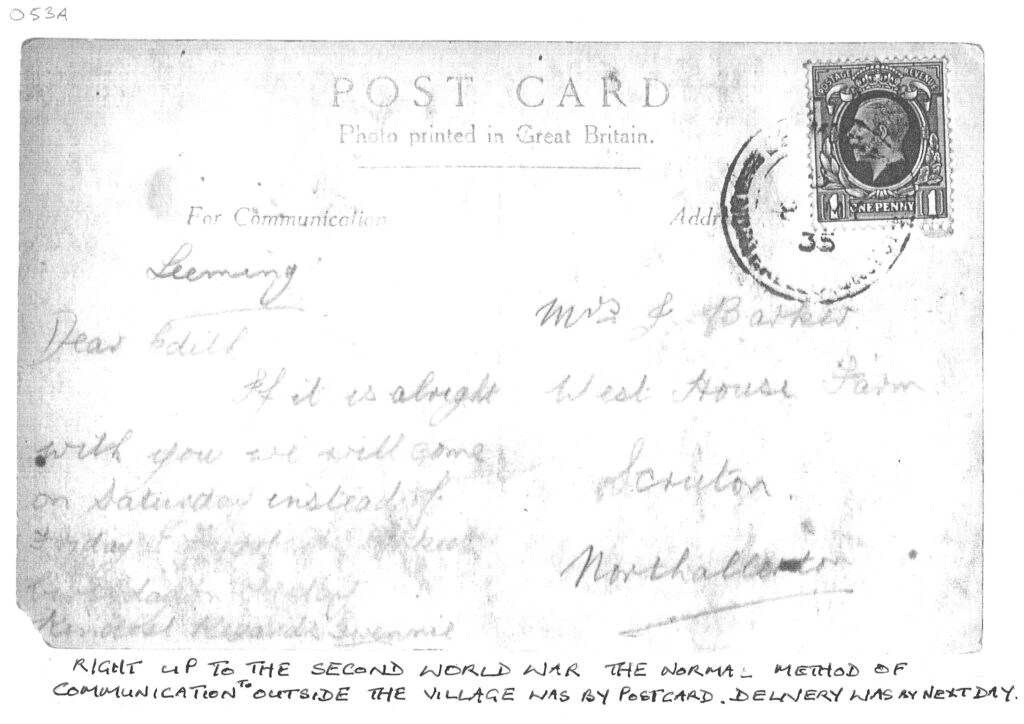 053A
POST CARD
Photo printed in Great Britain.
POSTAGE REVENUE
ONE PENNY
1 1
35
For Communication
Addr
Leeming
Mrs J Barker
Dear Edith
If it is alright
West House Farm
with you we will come
Scruton.
on Saturday instead of
Friday
Northallerton
Kindest Regards Gwennie
RIGHT UP TO THE SECOND WORLD WAR THE NORMAL METHOD OF
COMMUNICATION TO OUTSIDE THE VILLAGE WAS BY POSTCARD. DELIVERY WAS BY NEXT DAY.